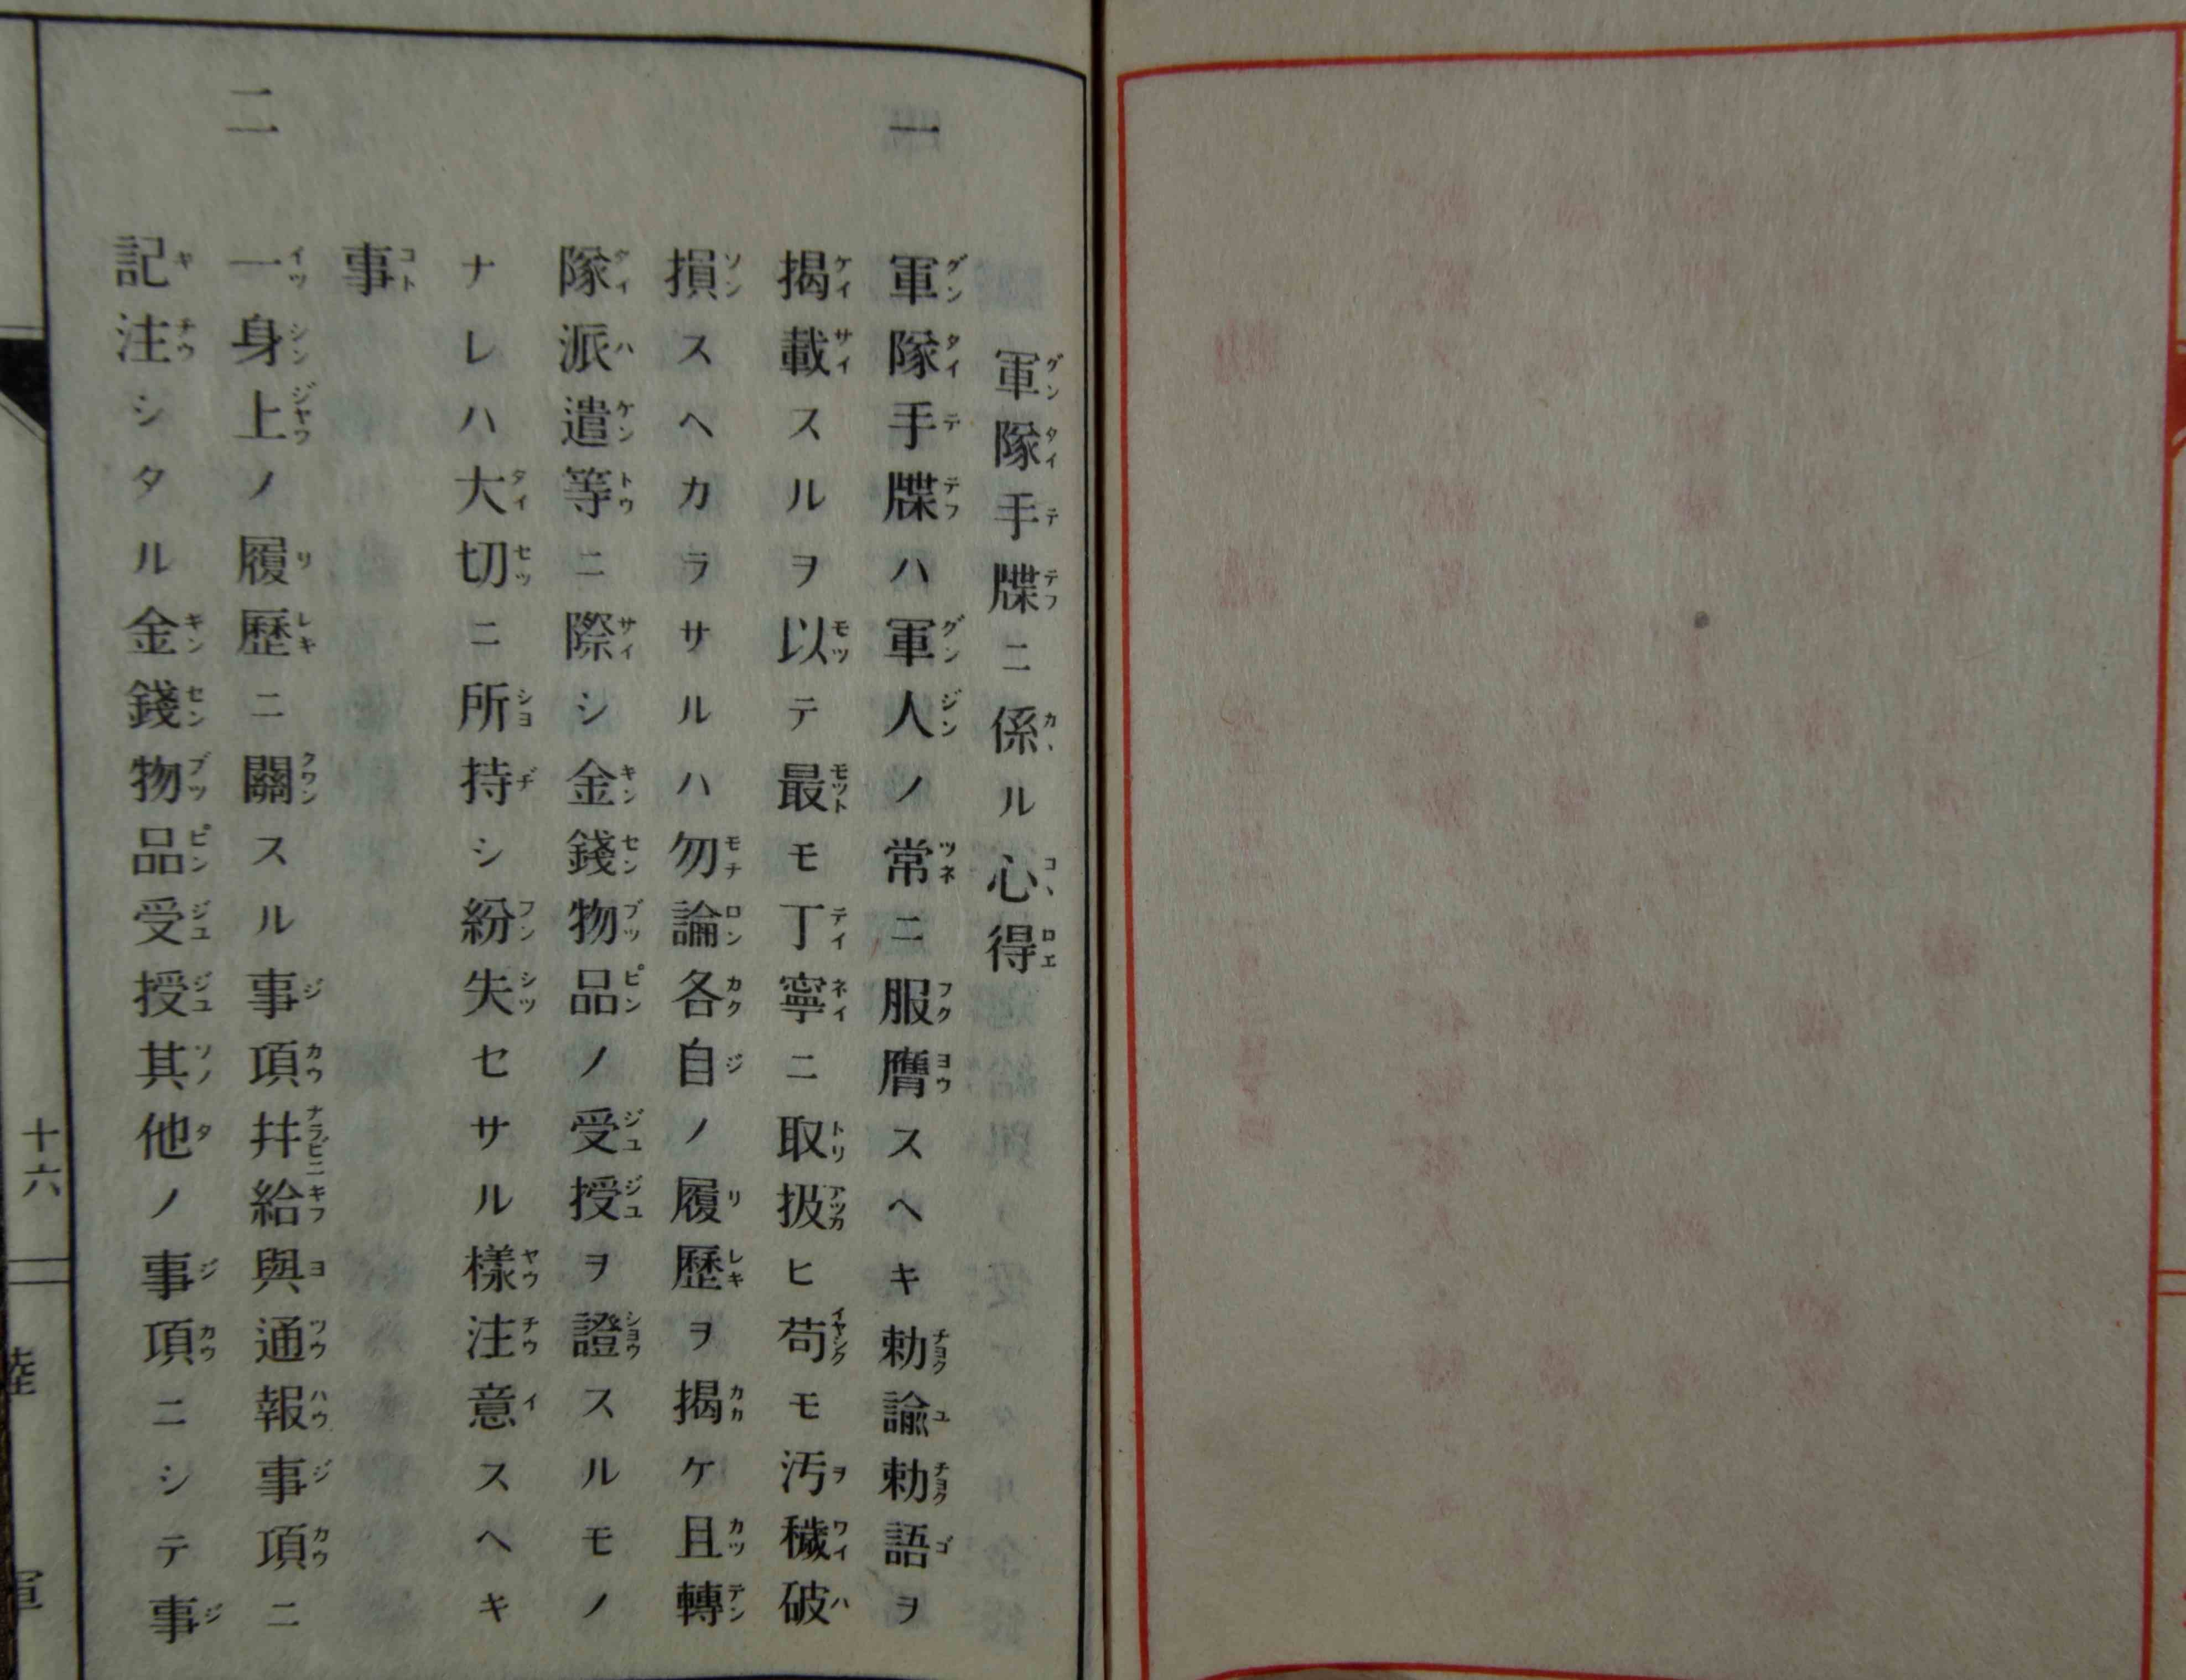 軍隊手牒ニ係ル心得
一 軍隊手牒ハ軍人ノ常ニ服膺スヘキ勅諭勅語ヲ
揭載スルヲ以テ最モ丁寧ニ取扱ヒ苟モ汚穢破
損スヘカラサルハ勿論各自ノ履歷ヲ揭ケ且轉
隊派遣等ニ際シ金錢物品ノ受授ヲ證スルモノ
ナレハ大切ニ所持シ紛失セサル樣注意スヘキ
事
二 一身上ノ履歷ニ關スル事項幷給與通報事項ニ
記注シタル金錢物品受授其他ノ事項ニシテ事
十六
陸軍